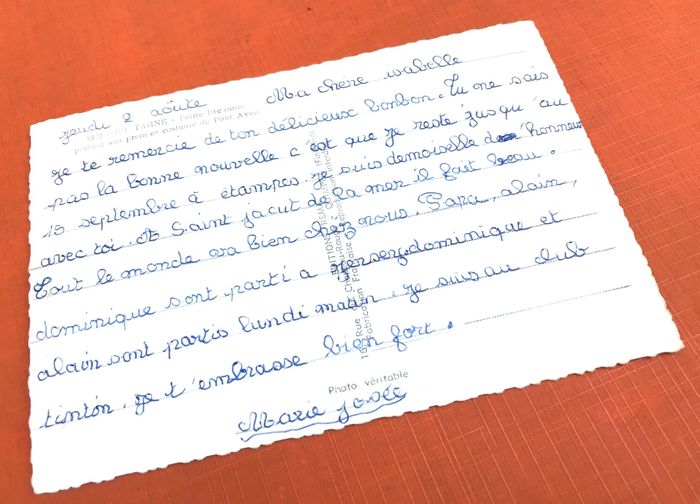 jeudi 2 aôute Ma chère isabelle
TAGNE - Petite Bretonne
portant son premier costume de Pont Aven
je te remercie de ton délicieux bonbon. Tu ne sais
pas la bonne nouvelle c'est que je reste jusqu'au
15 septembre à étampes. je suis demoiselle d' honneur
avec toi. A Saint jacut de la mer il fait beau.
Tout le monde va bien chez nous. Papa, alain,
dominique sont parti a jersey dominique et
alain sont partis lundi matin. je suis au club
tintin. je t'embrasse bien fort.
Photo véritable
Marie josée
Fabrication Française